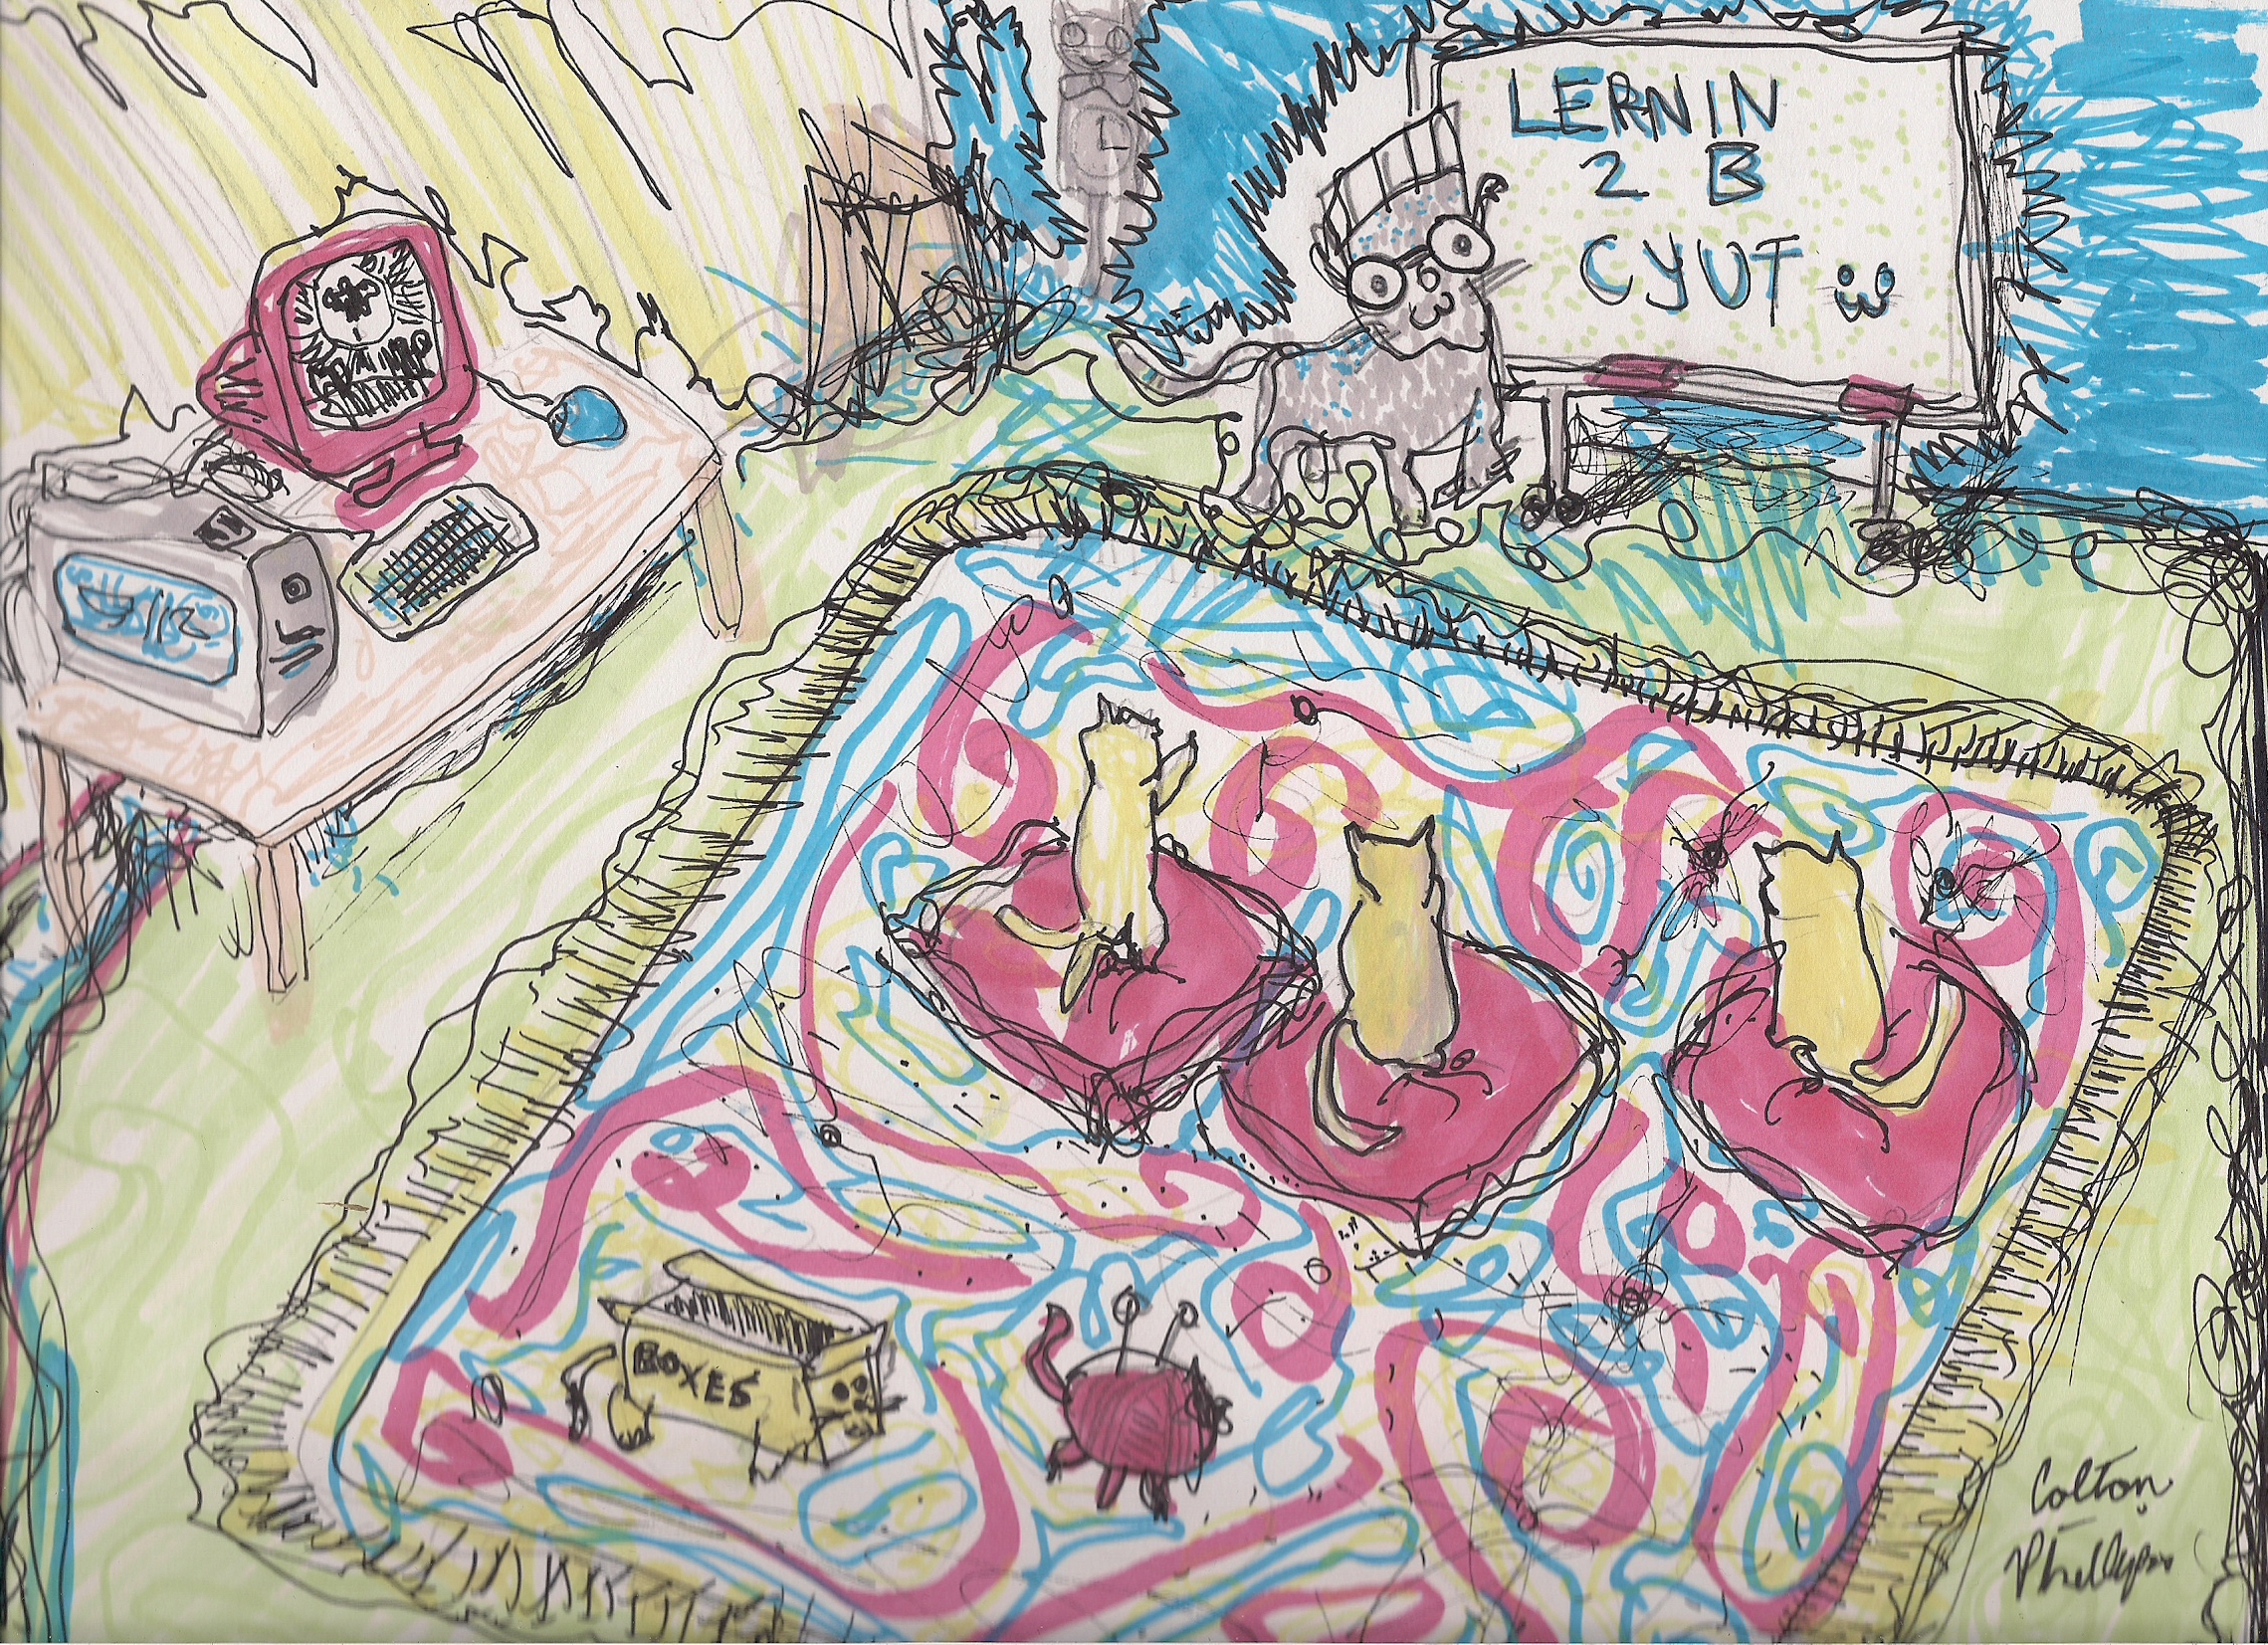 LERNIN
2 B
CYUT
BOXES
Colton
Phillips